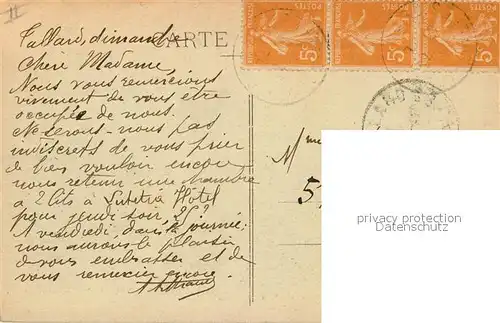 II
CARTE
Tallard, dimanche
Chère Madame,
Nous vous remercions
vivement de vous être
occupée de nous.
Ne serons-nous pas
indiscrets de vous prier
de bien vouloir encore
nous retenir une chambre
à 2 lits à Lutetia Hôtel
pour jeudi soir,
A vendredi, dans la journée;
nous aurons le plaisir
de vous embrasser et de
vous remercier encore
POSTES
5c
POSTES
5c
POSTES
5c
Mme
5,
privacy protection
Datenschutz